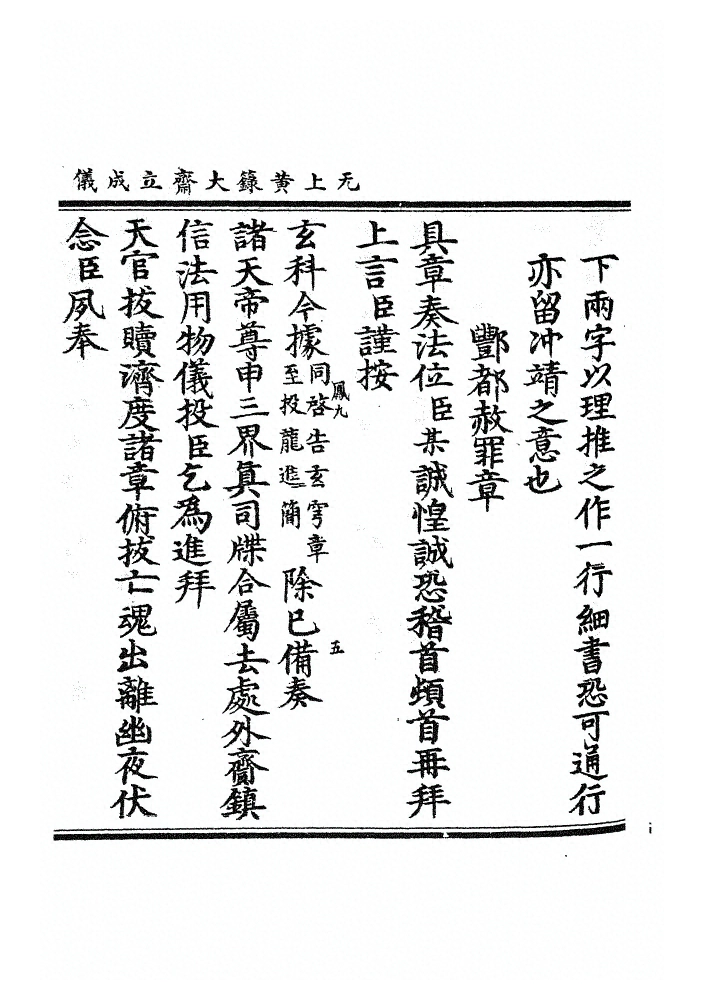 无上黄籙大齋立成儀
下兩字以理推之作一行細書恐可通行
亦留冲靖之意也
酆都赦罪章
具章奏法位臣某誠惶誠恐稽首頓首再拜
上言臣謹按
玄科今據同啓告玄穹章至投龍進簡除已備奏
鳳九
五
諸天帝尊申三界真司牒合屬去處外齋鎮
信法用物儀投臣乞為進拜
天官拔贖濟度諸章俯拔亡魂出離幽夜伏
念臣夙奉